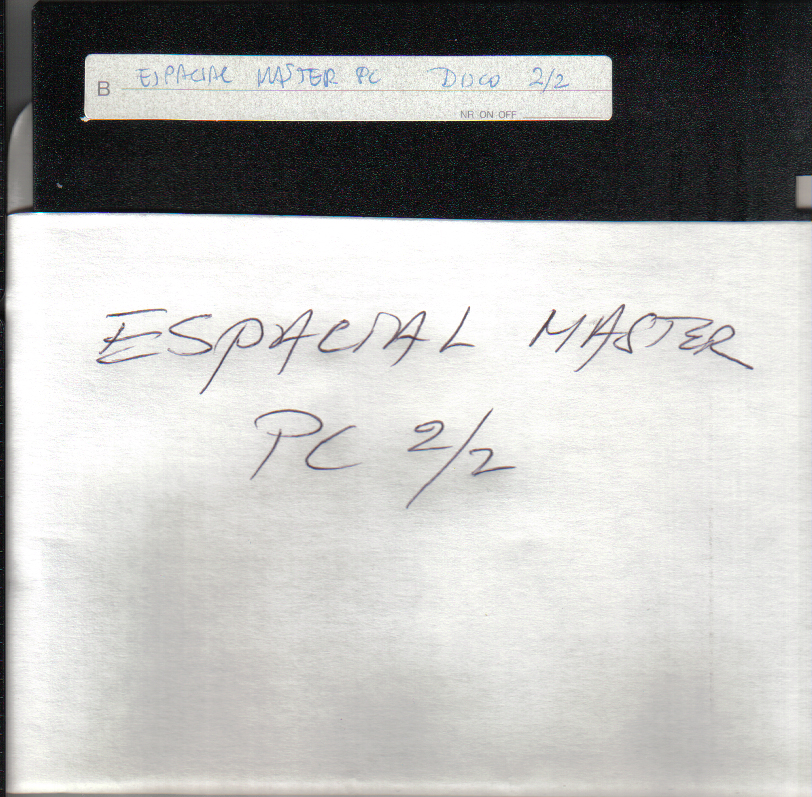 B ESPACIAL MASTER PC DISCO 2/2
NR ON OFF
ESPACIAL MASTER
PC 2/2